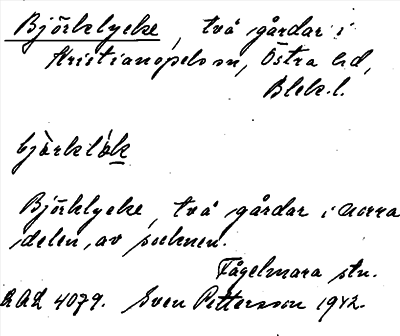 Björklycke, två gårdar i
Kristianopels sn, Östra hd,
Blek.l.
bjö̀rklö́k
Björklycke, två gårdar i norra
delen av socknen.
Fågelmara stn.
4079. Sven Pettersson 1942.